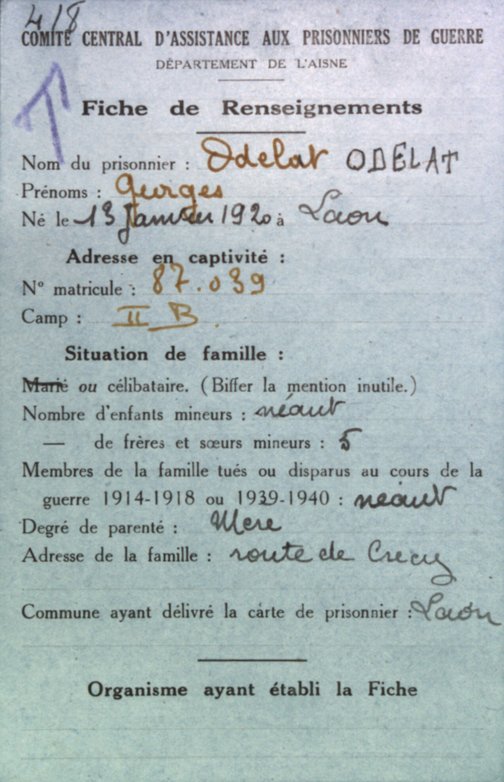 418
COMITÉ CENTRAL D'ASSISTANCE AUX PRISONNIERS DE GUERRE
DÉPARTEMENT DE L'AISNE
Fiche de Renseignements
Nom du prisonnier : Odelat ODELAT
Prénoms : Georges
Né le 13 Janvier 1920 à Laon
Adresse en captivité :
N° matricule : 87.039
Camp : II B
Situation de famille :
Marié ou célibataire. (Biffer la mention inutile.)
Nombre d'enfants mineurs : néant
— de frères et sœurs mineurs : 5
Membres de la famille tués ou disparus au cours de la
guerre 1914-1918 ou 1939-1940 : néant
Degré de parenté : Mere
Adresse de la famille : route de Crecy
Commune ayant délivré la carte de prisonnier : Laon
Organisme ayant établi la Fiche